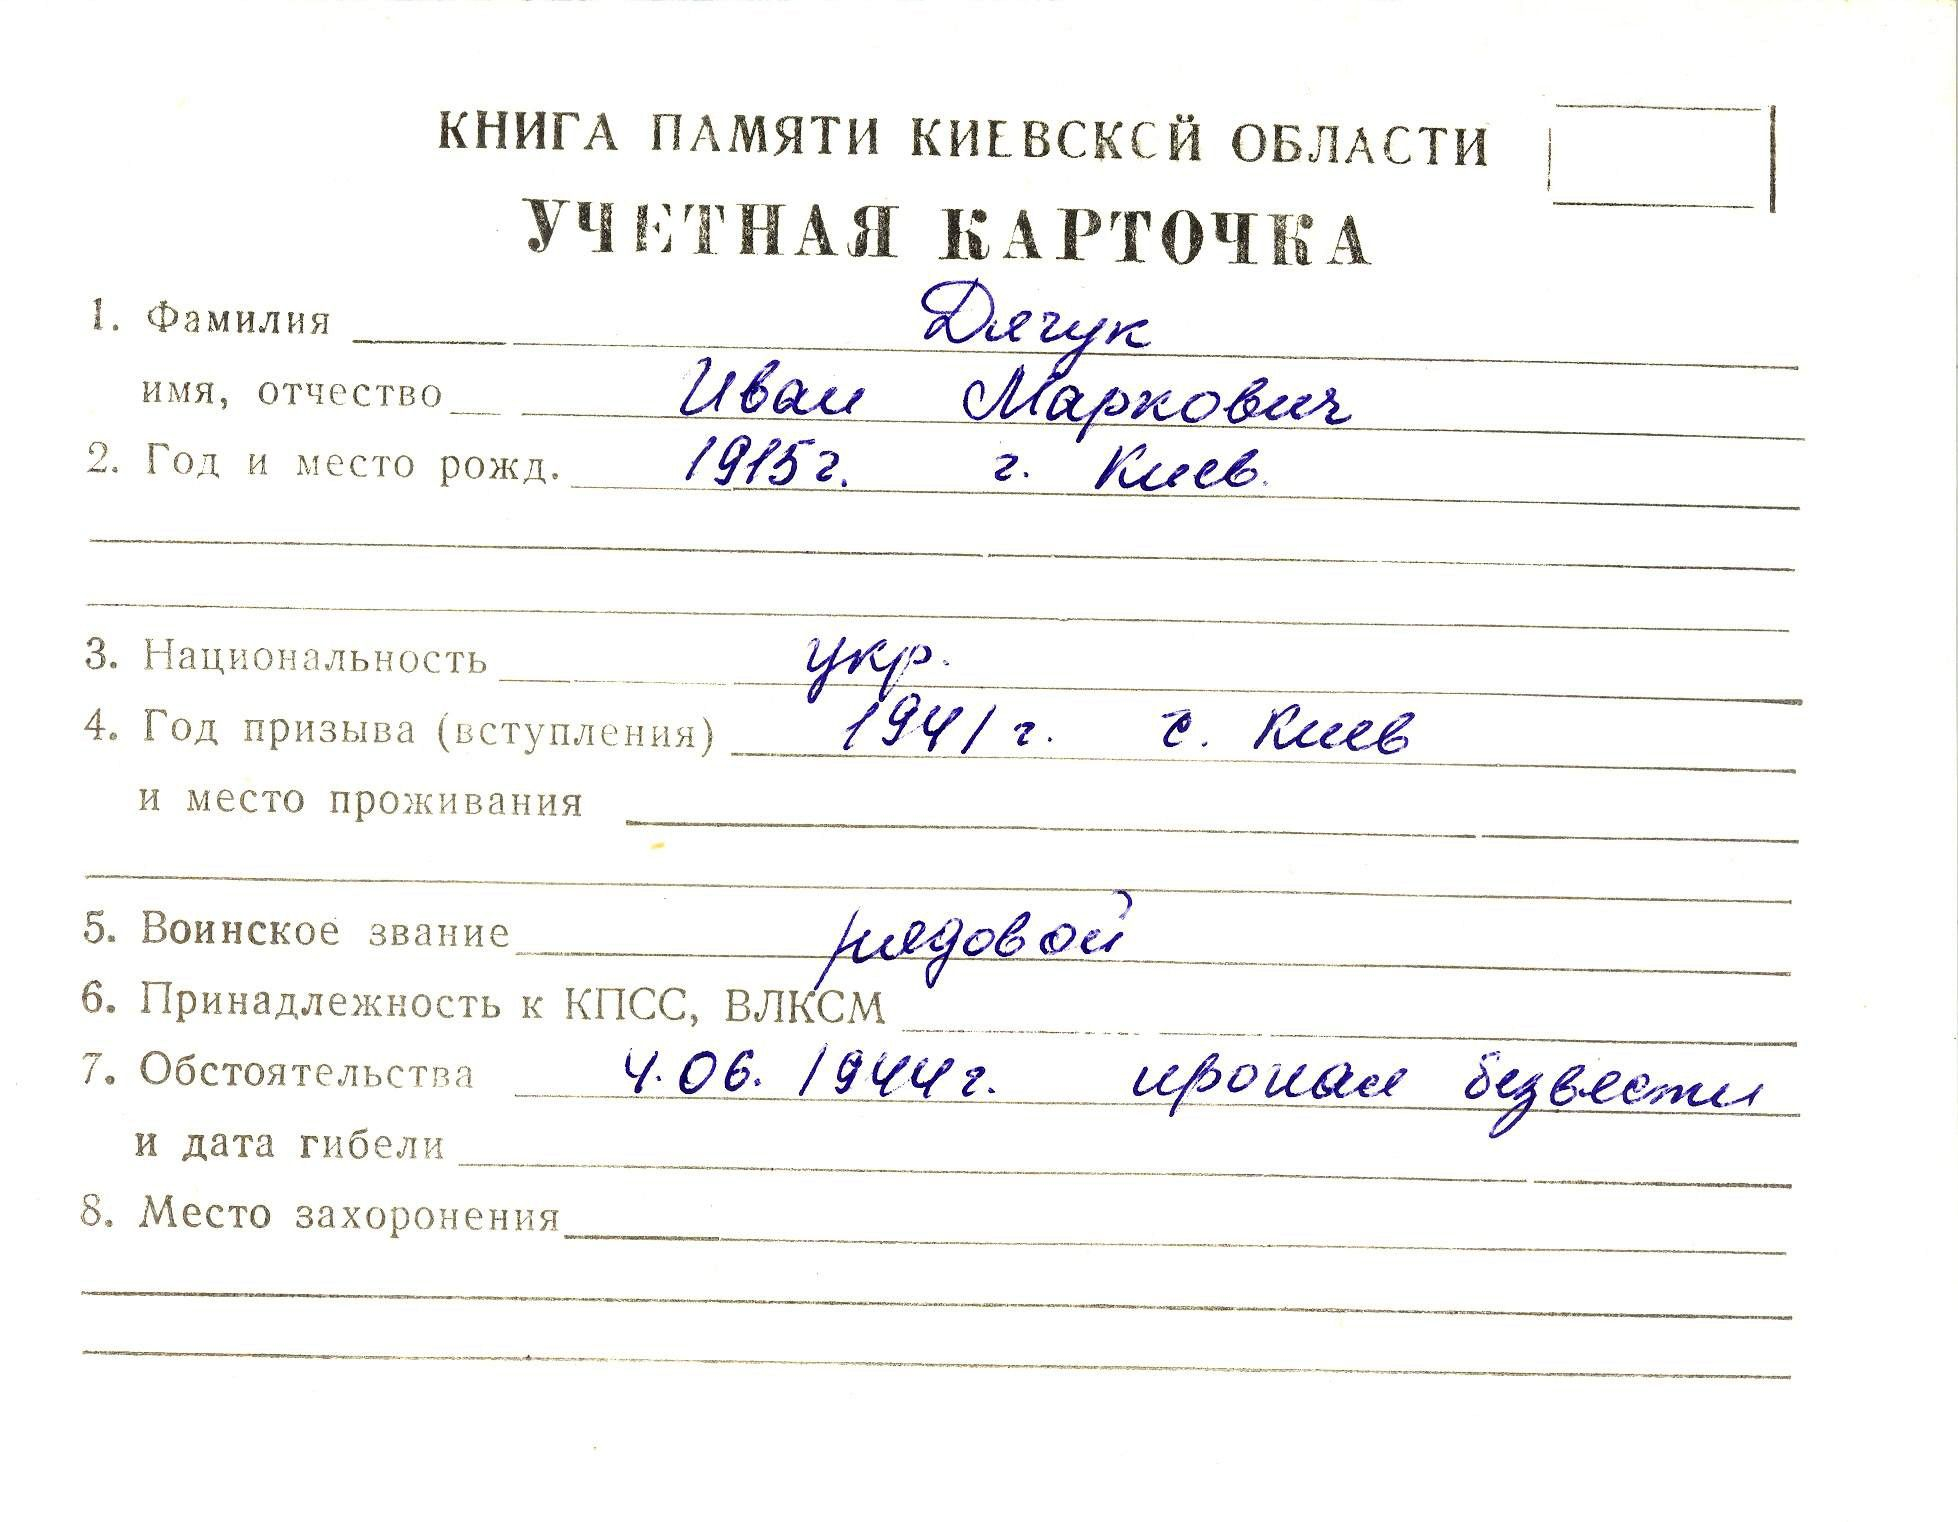 КНИГА ПАМЯТИ КИЕВСКОЙ ОБЛАСТИ
УЧЕТНАЯ КАРТОЧКА
1. Фамилия Дячук
имя, отчество Иван Маркович
2. Год и место рожд. 1915г. г. Киев.
3. Национальность укр.
4. Год призыва (вступления) 1941г. г. Киев
и место проживания
5. Воинское звание рядовой
6. Принадлежность к КПСС, ВЛКСМ
7. Обстоятельства 4.06.1944г. пропал безвести
и дата гибели
8. Место захоронения